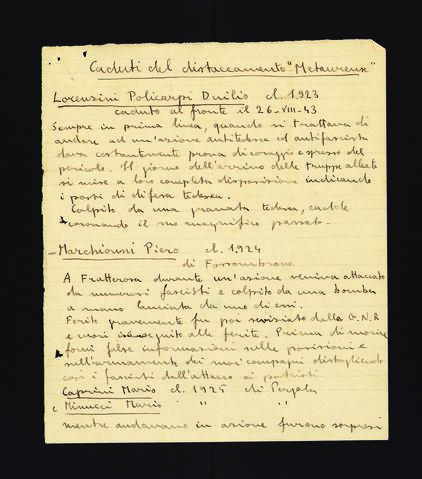 Caduti del distaccamento "Metaurense"
Lorenzini Policarpi Duilio cl. 1923
caduto al fronte il 26-VIII-43
Sempre in prima linea, quando si trattava di
andare ad un'azione antitedesca ed antifascista
dava costantemente prova di coraggio e sprezzo del
pericolo. Il giorno dell'arrivo delle truppe alleate
si mise a loro completa disposizione indicando
i posti di difesa tedesca.
Colpito da una granata tedesca, cadde
coronando il suo magnifico passato.
- Marchionni Piero cl. 1924
di Fossombrone
A Fratterosa durante un'azione veniva attaccato
da numerosi fascisti e colpito da una bomba
a mano lanciata da uno di essi.
Ferito gravemente fu poi seviziato dalla G.N.R
e morì in seguito alle ferite. Prima di morire
fornì false informazioni sulle posizioni e
sull'armamento dei suoi compagni distogliendo
così i fascisti dall'attacco ai patrioti
Caprini Mario cl. 1925 di Pergola
e Minucci Mario " " "
mentre andavano in azione furono sorpresi